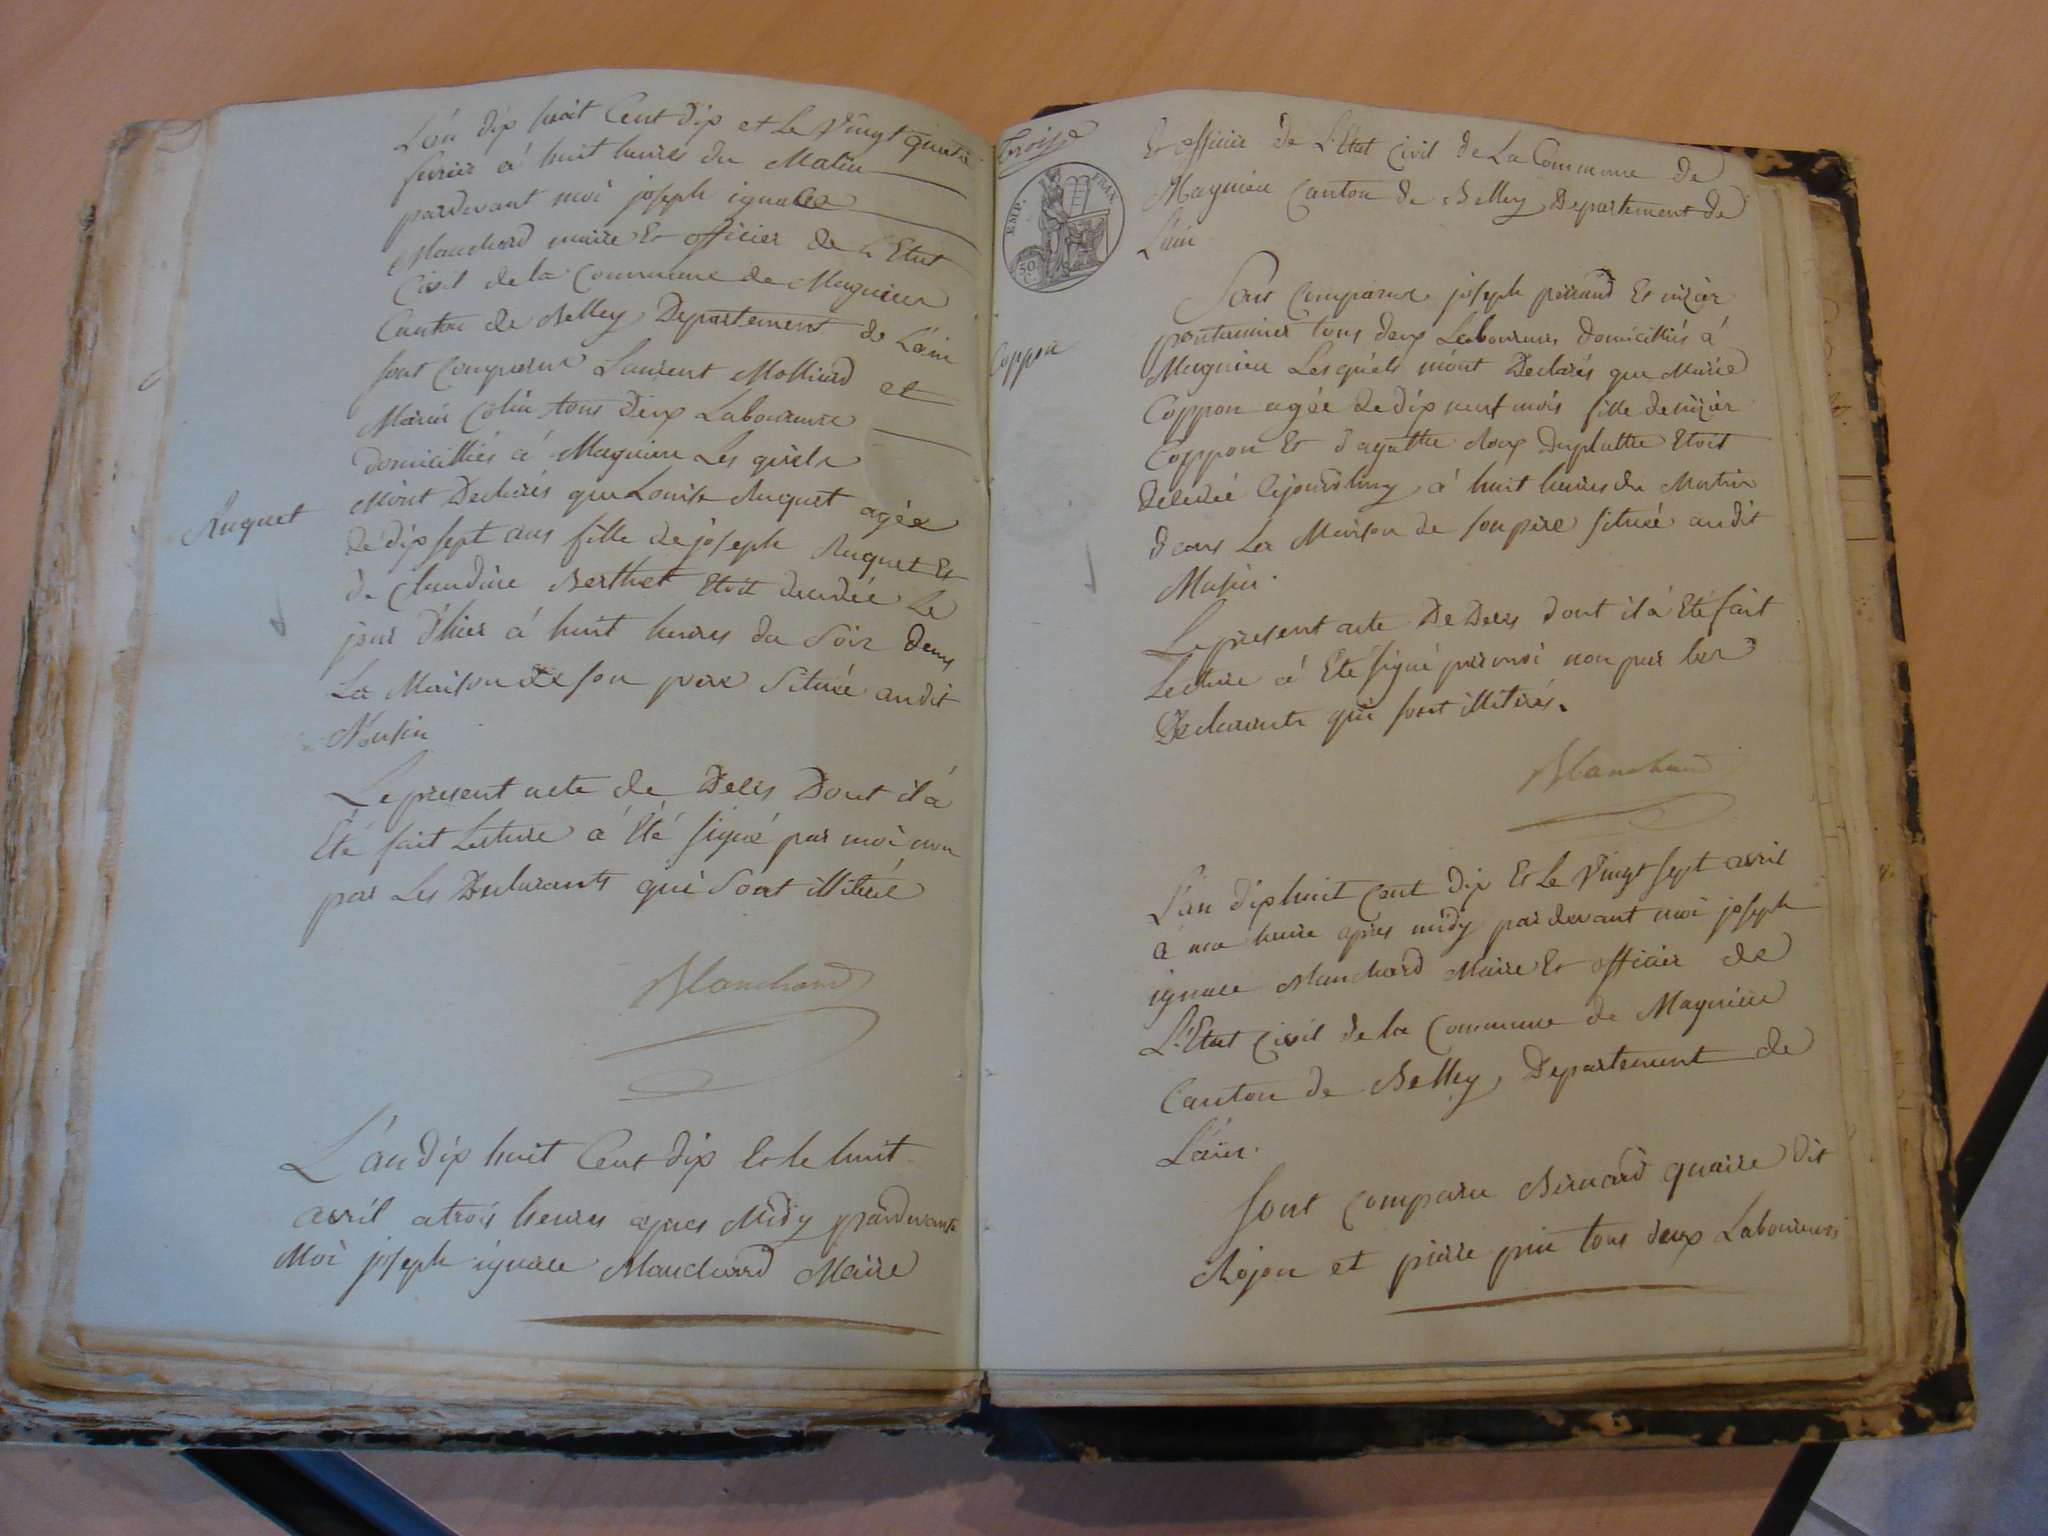 L'an dix huit Cent dix et Le Vingt quatre
fevrier á huit heures du Matin
pardevant moi joseph ignace
Blanchard maire Et officier de L'Etat
Civil de la Commune de Magnieu
Canton de Belley Departement de L'ain
sont comparus Laurent Molliard et
Marin Colin tous deux Laboureurs
domicilliés á Magnieu Les quels
Ruquet
Mont Declarés que Louise Ruquet agée
de dix sept ans fille de joseph Ruquet Et
de Claudine Berthet Etoit decedée Le
jour d'hier á huit heures du Soir dans
La Maison de son pere Située audit
Musin
Le present acte de Deces Dont il á
Eté fait Lecture á Eté signé par moi non
par Les Declarants qui Sont illitéré
Blanchard
L'an dix huit Cent dix Et le huit
avril a trois heures apres Midy pardevant
Moi joseph ignace Blanchard Maire
Troise
EMP. FRAN.
50 C.
Et officier de L'Etat Civil de La Commune de
Magnieu Canton de Belley Departement de
L'ain
Coppon
Sont Comparus joseph perraud Et nizier
tous deux Laboureurs domicilliés á
Magnieu Lesquels m'ont Declarés que Marie
Coppon agée de dix neuf mois fille de nizier
Coppon Et d'agathe Roux Duplattre Etoit
décedeé Cejourdhuy á huit heures du Matin
dans La Maison de son pere située audit
Musin.
Le present acte De Deces dont il á Eté fait
Lecture á Eté signé par moi non par les
Declarants qui sont illitérés.
Blanchard
L'an dix huit Cent dix Et Le Vingt sept avril
á une heure aprés midy pardevant moi joseph
ignace Blanchard Maire Et officier de
L'Etat Civil de la Commune de Magnieu
Canton de Belley, Departement de
L'ain.
Sont Comparu Bernard quaire dit
Rojon et pierre tous deux Laboureurs